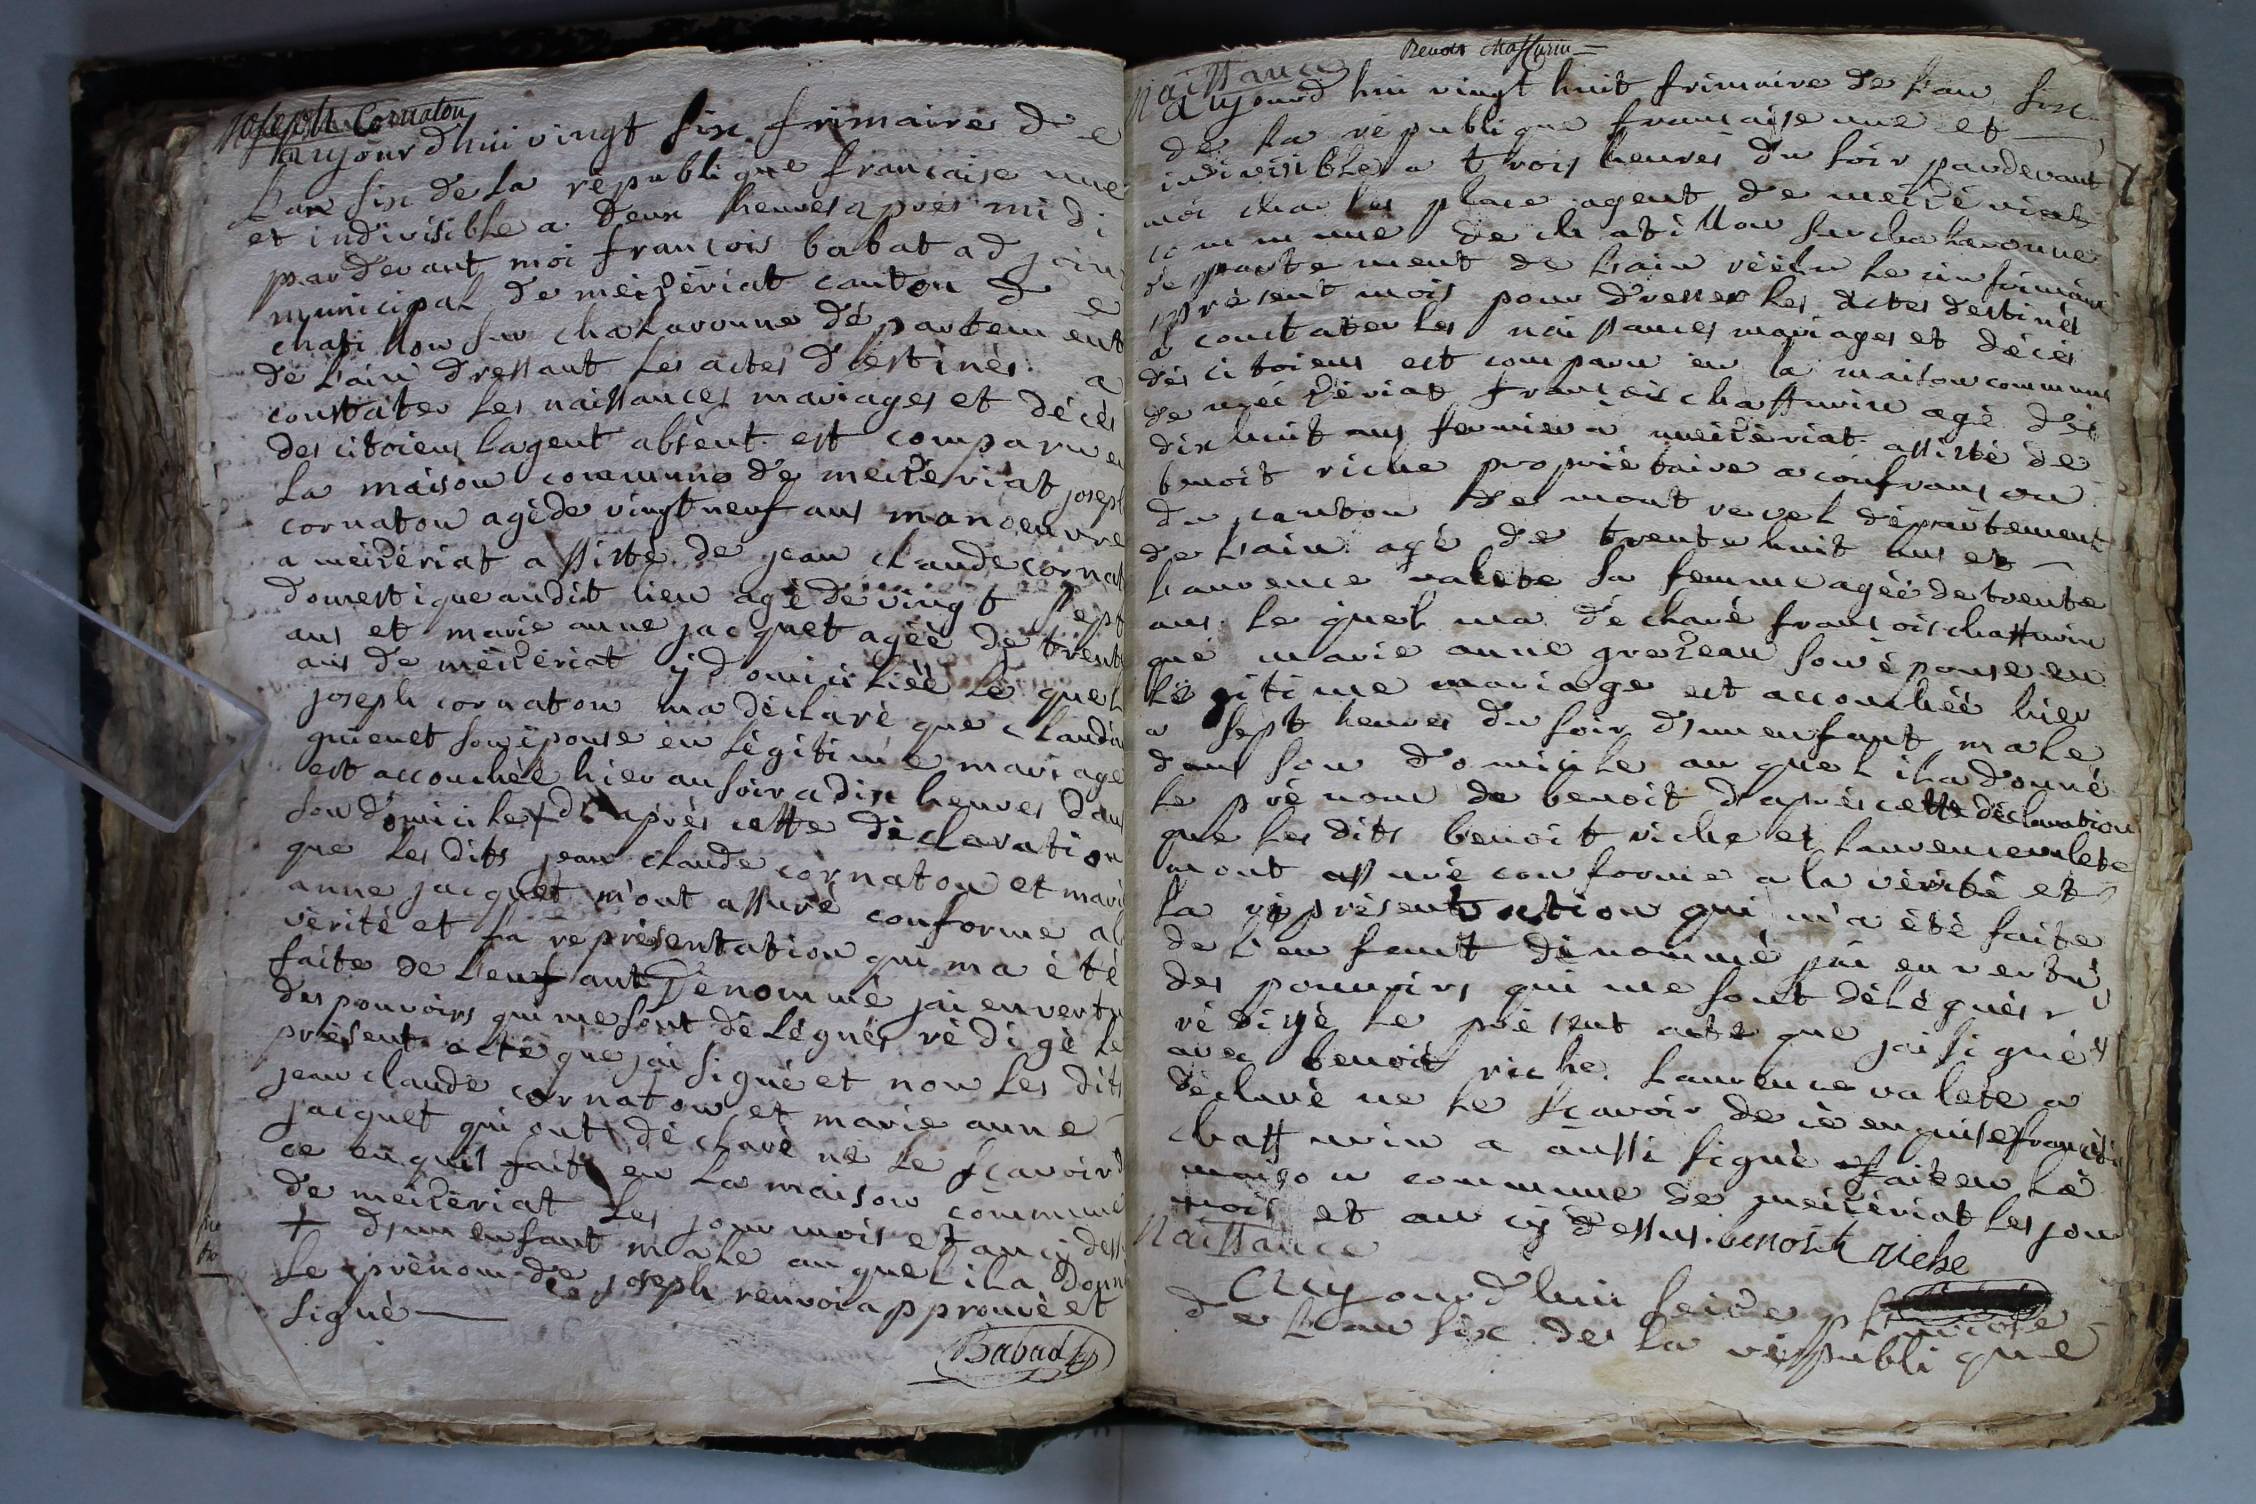 joseph Cornaton
aujourdhui vingt six frimaire de
Lan six de la république francaise une
et indivisible a deux heures après midi
pardevant moi françois babat adjoin
municipal de meizériat canton de
chatillon sur chalaronne département
de l'ain dressant les actes destinés a
constater les naissances mariages et décès
des citoiens lagent absent est comparu en
la maison commune de meizériat joseph
cornaton agé de vingt neuf ans manoeuvre
a meizériat assisté de jean claude cornat
domestique audit lieu agé de vingt sept
ans et marie anne jacquet agée de trente
ans de meizériat y domiciliée le quel
joseph cornaton ma déclaré que claudin
guienet son épouse en légitime mariage
est accouchée hier au soir a dix heures dans
son domicile + d'après cette déclaration
que les dits jean claude cornaton et mari
anne jacquet m'ont assuré conforme a la
vérité et la représentation qui ma été
faite de l'enfant dénommé jai en vertu
des pouvoirs qui me sont délégués rédigé le
présent acte que jai signé et non les dits
jean claude cornaton et marie anne
jacquet qui ont déclaré ne le sçavoir de
ce enquis fait en la maison commune
de meizériat les jour mois et an cy dess
+ d'un enfant male auquel il a donn
le prénom de joseph renvoi approuvé et
signé
Babad
Benoit chassurin
Naissance
aujourd hui vingt huit frimaire de l'an six
de la république francaise une et
indivisible a trois heures du soir pardevant
moi charles place agent de meizériat
commune de chatillon sur chalaronne
département de l'ain réélu le un frimaire
présent mois pour dresser les actes destinés
a constater les naissances mariages et décès
des citoiens est comparu en la maison commune
de meizériat francois chassurin agé de
dix huit ans fermier a meizériat assisté de
benoit riche propriétaire a confrançon
du canton de mont revel département
de l'ain agé de trente huit ans et
laurence valete sa femme agée de trente
ans le quel ma déclaré francois chassurin
que marie anne grezeau son épouse en
légitime mariage est accouchée hier
a sept heures du soir d'un enfant male
dans son domicile au quel il a donné
le prénom de benoit d'après cette déclaration
que les dits benoit riche et laurence valete
mont assuré conforme a la vérité et
la représentation qui m'a été faite
de l'enfant dénommé jai en vertu
des pouvoirs qui me sont délégués
rédigé le présent acte que jai signé
avec benoit riche laurence valete a
déclaré ne le sçavoir de ce enquise francois
chassurin a aussi signé fait en la
maison commune de meizériat les jour
mois et an cy dessus. benoit riche
Naissance
Aujourd'hui seize pluviose
de l'an six de la république